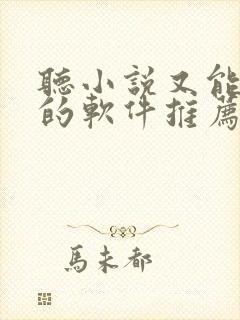 聽小説又能
的軟件推薦
馬未都